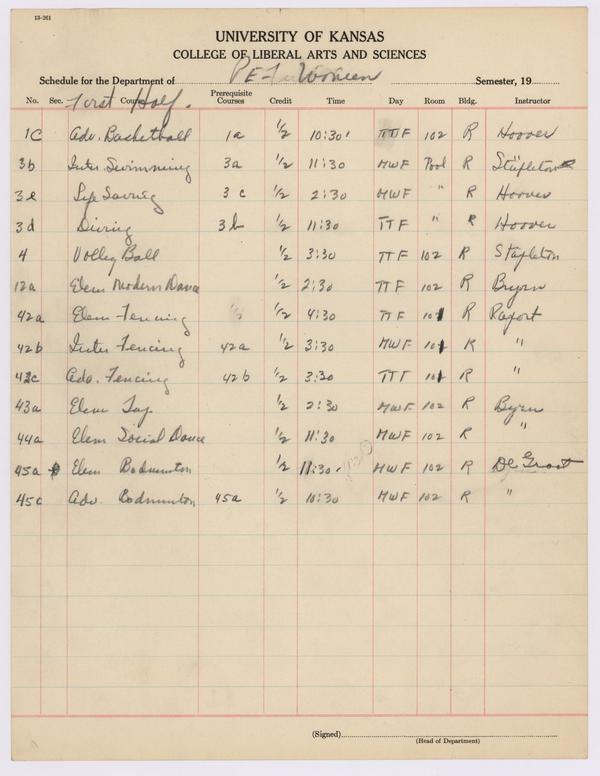 13-261
UNIVERSITY OF KANSAS
COLLEGE OF LIBERAL ARTS AND SCIENCES
Schedule for the Department of P E - Women Semester, 19
No. Sec. Course Prerequisite Courses Credit Time Day Room Bldg. Instructor
First Half.
1c Adv. Basketball 1a 1/2 10:30 TTF 102 R Hoover
3b Inter Swimming 3a 1/2 11:30 MWF Pool R Stapleton
3e Life Saving 3c 1/2 2:30 MWF " R Hoover
3d Diving 3b 1/2 11:30 TTF " R Hoover
4 Volley Ball 1/2 3:30 TTF 102 R Stapleton
12a Elem Modern Dance 1/2 2:30 TTF 102 R Byrn
42a Elem Fencing 1/2 4:30 TTF 101 R Raport
42b Inter Fencing 42a 1/2 3:30 MWF 101 R "
42c Adv. Fencing 42b 1/2 3:30 TTF 101 R "
43a Elem Tap 1/2 2:30 MWF 102 R Byrn
44a Elem Social Dance 1/2 11:30 MWF 102 R "
45a Elem Badminton 1/2 11:30 MWF 102 R De Groot
45c Adv. Badminton 45a 1/2 10:30 MWF 102 R "
(Signed)
(Head of Department)